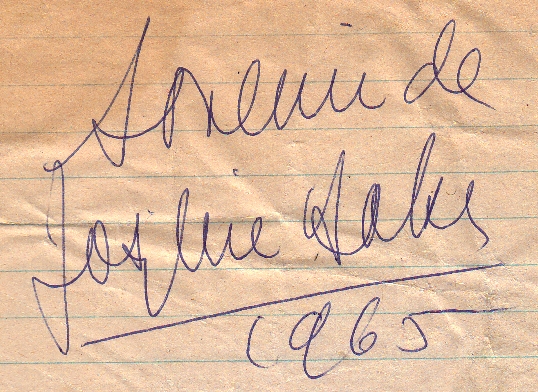 Souvenir de
Joséphine Baker
1965